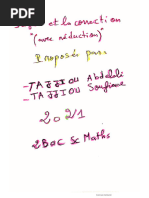 et la correction
"(avec rédaction)"
Proposée par:
-TAJJIOU Abdelali
-TAJJIOU Soufiane
2021
2Bac Sc Maths